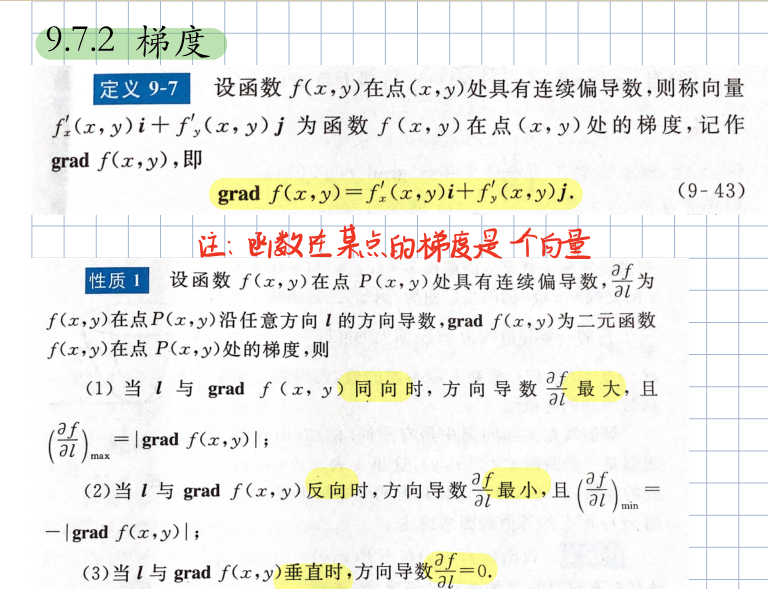 9.7.2 梯度
定义 9-7 设函数 f(x,y)在点(x,y)处具有连续偏导数,则称向量
f′ₓ(x,y)i+f′ᵧ(x,y)j 为函数 f(x,y)在点(x,y)处的梯度,记作
grad f(x,y),即
grad f(x,y)=f′ₓ(x,y)i+f′ᵧ(x,y)j. (9-43)
注: 函数在某点的梯度是一个向量
性质 1 设函数 f(x,y)在点 P(x,y)处具有连续偏导数,∂f/∂l为
f(x,y)在点P(x,y)沿任意方向 l 的方向导数,grad f(x,y)为二元函数
f(x,y)在点 P(x,y)处的梯度,则
(1) 当 l 与 grad f(x,y)同向时,方向导数 ∂f/∂l 最大,且
(∂f/∂l)max=|grad f(x,y)|;
(2)当 l 与 grad f(x,y)反向时,方向导数∂f/∂l最小,且(∂f/∂l)min=
-|grad f(x,y)|;
(3)当 l 与 grad f(x,y)垂直时,方向导数∂f/∂l=0.